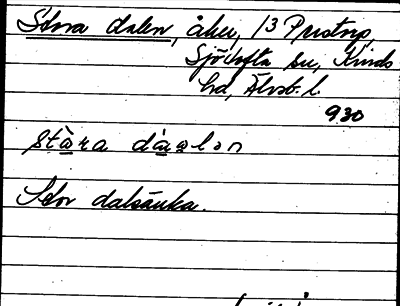 Stora dalen, åker, 13 Prustorp,
Sjötofta sn, Kinds
hd, Älvsb. l.
930
stàra dàalən
Stor dalsänka.